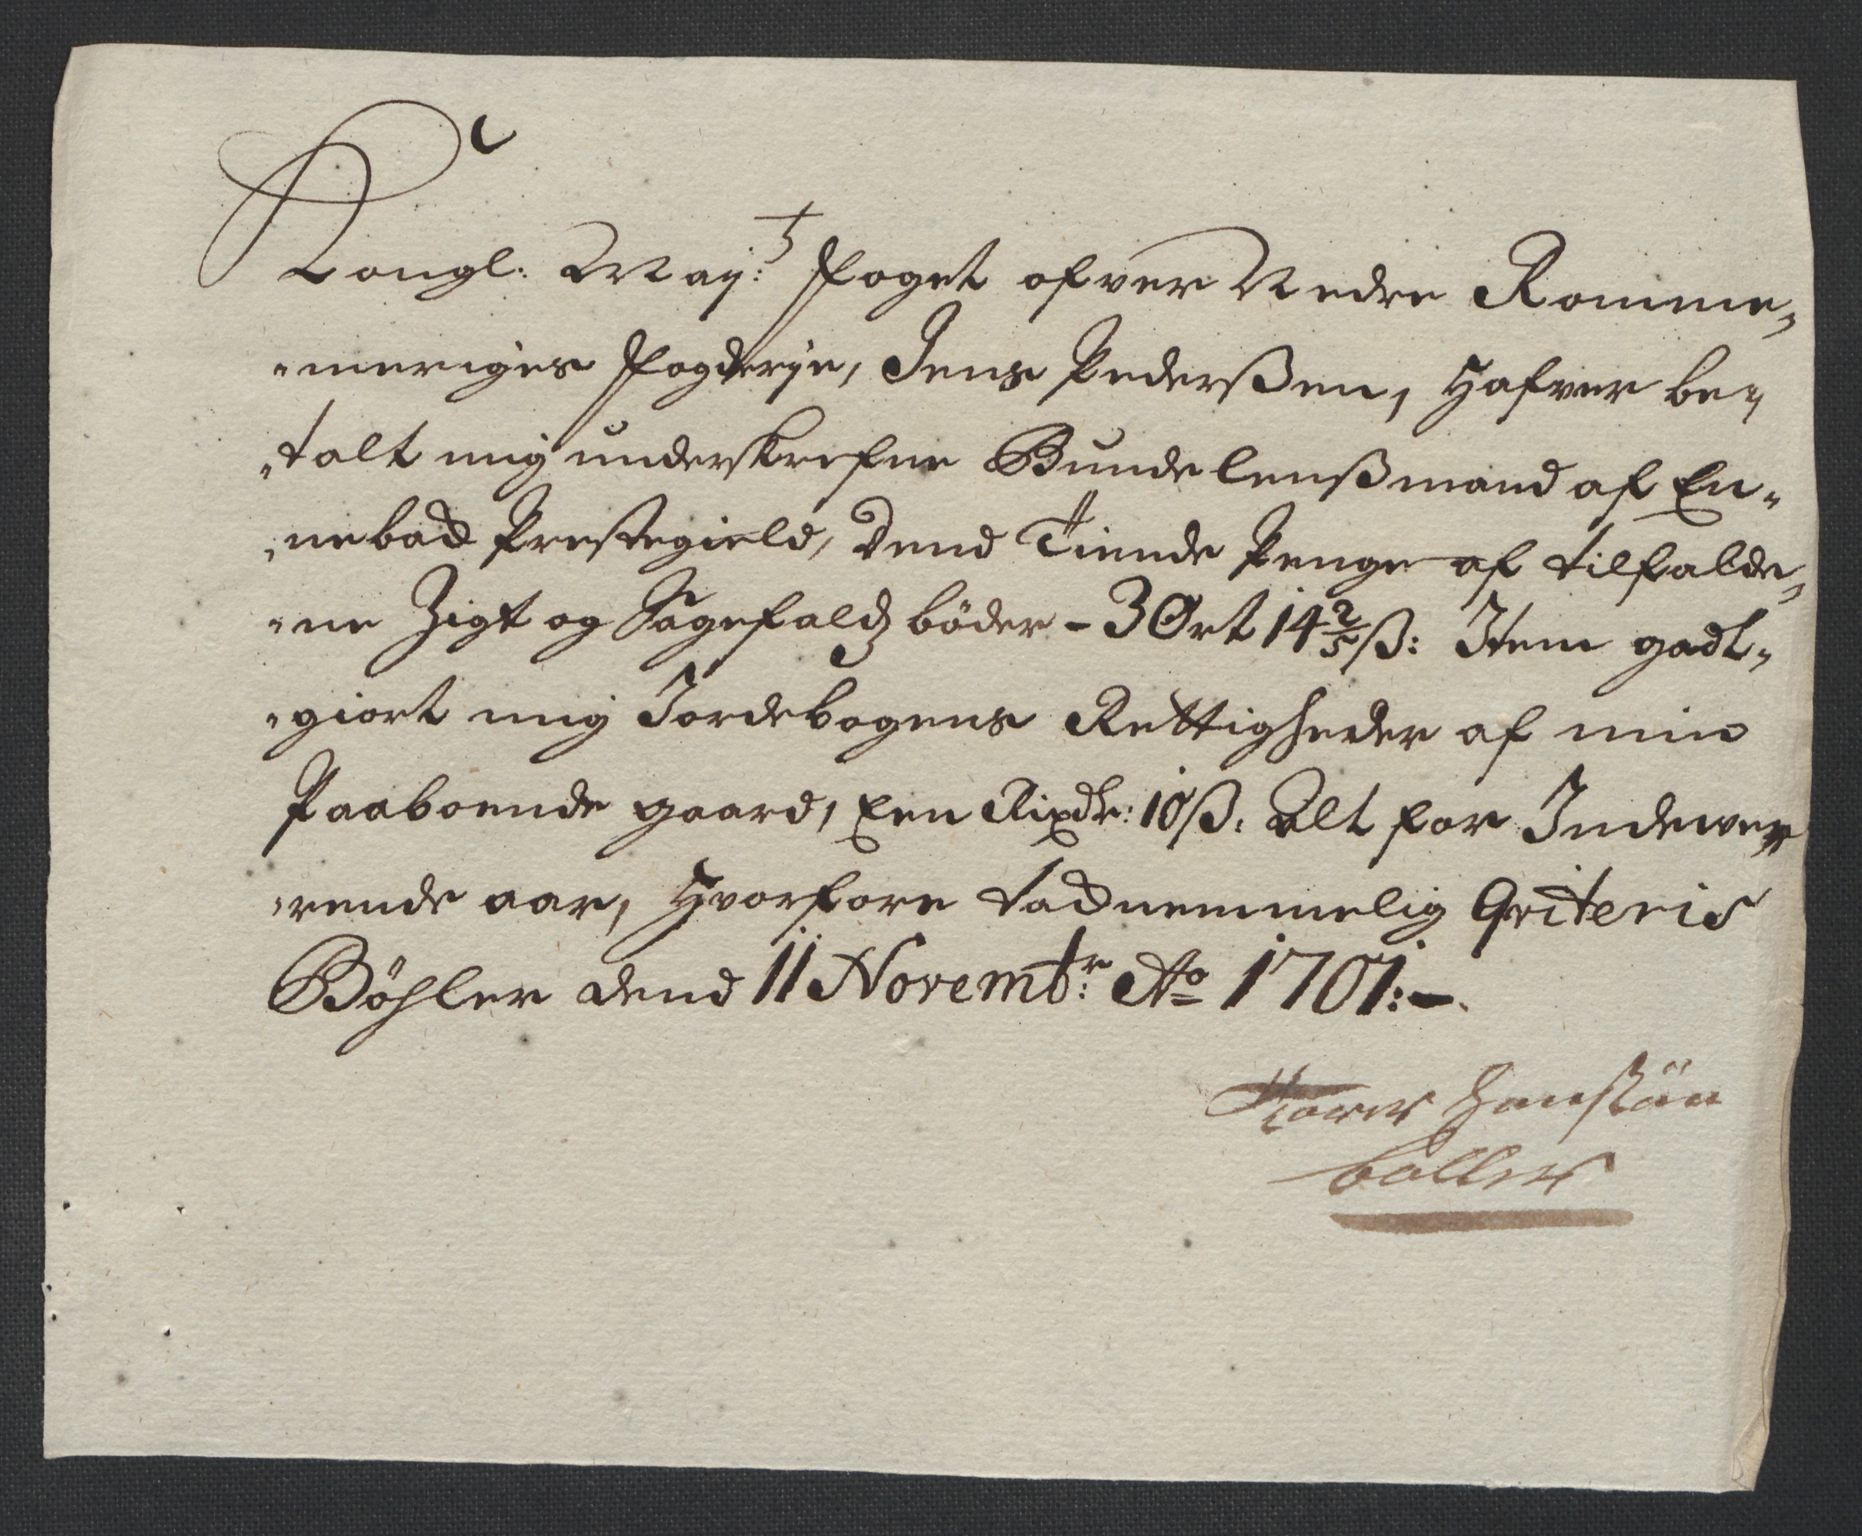 Kongl: May:t Foget ofver Nedre Romme-
-meriges Fogderje, Jens Pederßen, Hafver be-
-talt mig underskrefne Bunde lenßmand af En-
-nebak Prestegield, Dend Tiende Penge af tilfalde-
-ne Sigt og Sagefalds bøder - 3 Ort 14 2/5 ß: Item godt-
-giort mig Jordebogens Rettigheder af min
Paaboende gaard, Een Rixdr: 10 ß. Alt for Indewer-
-rende aar, Hvorfore tacknemmelig Qviteris
Böhler dend 11 Novembr: Ao 1701:-.
Hansßön
böller